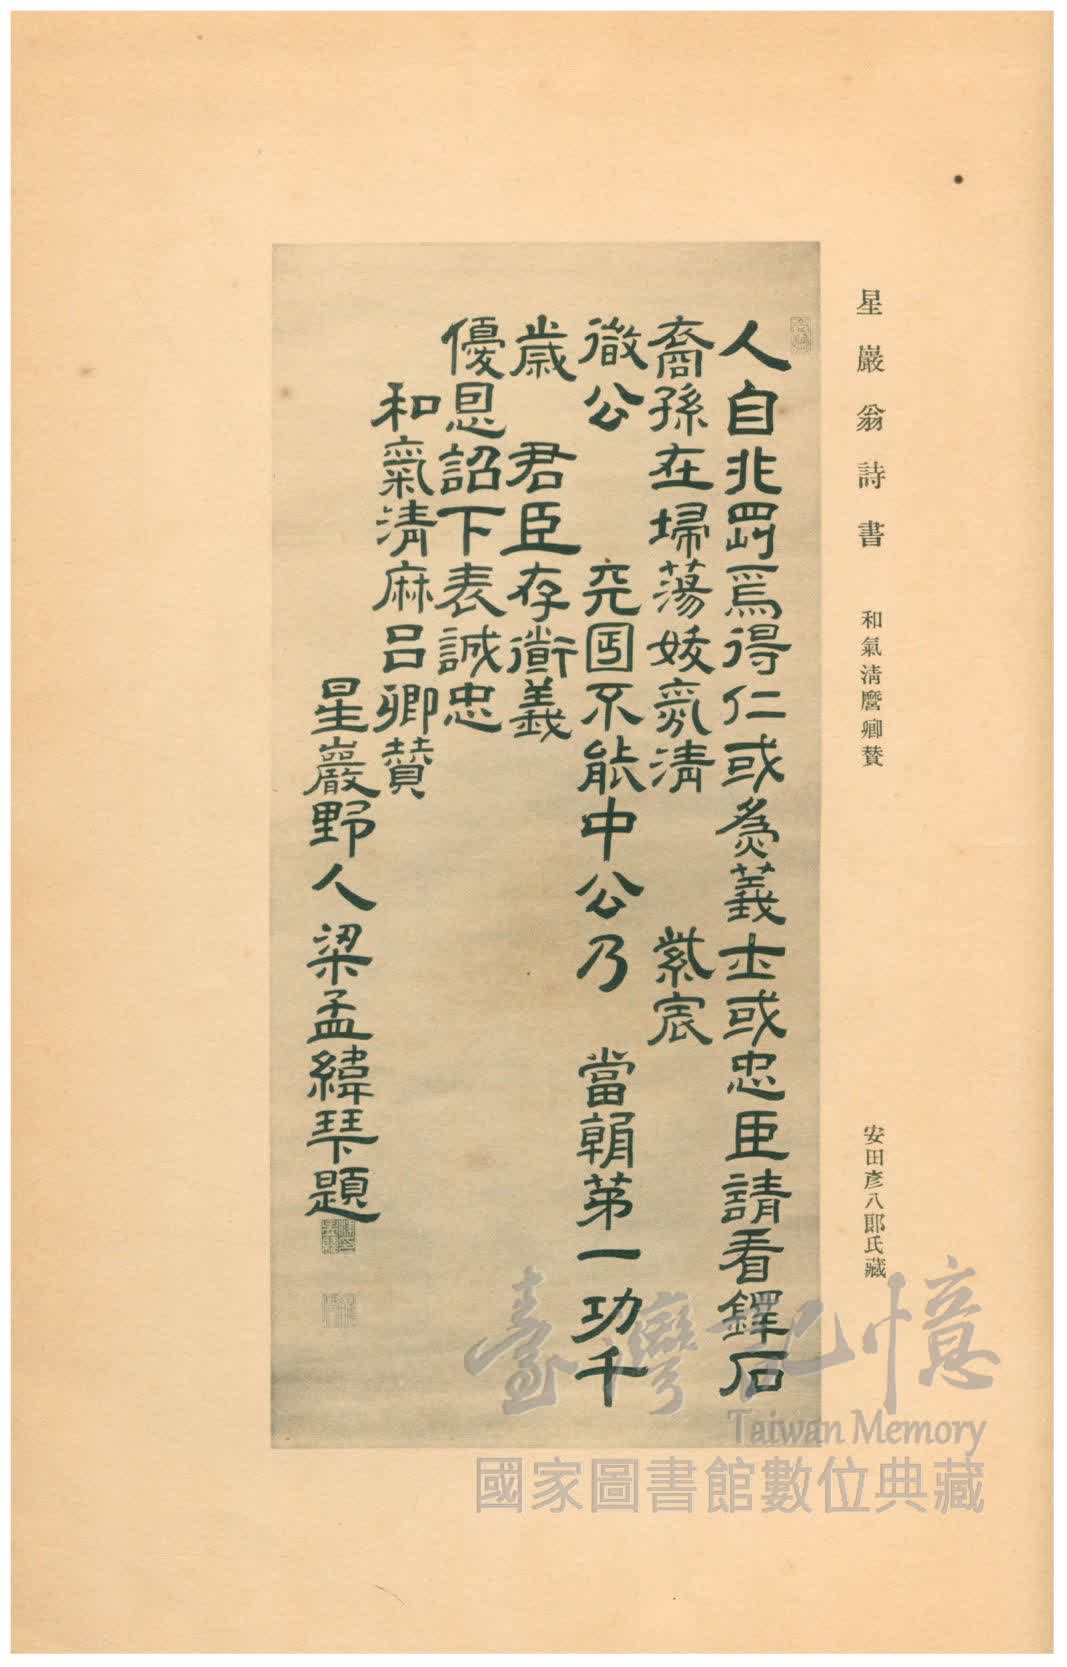 星巖翁詩書　和氣淸麿卿賛　安田彥八郎氏藏
人自非剛焉得仁或爲義士或忠臣請看鐸石
裔孫在埽蕩妖氛淸　紫宸
微公　完國不能中公乃　當朝第一功千
歲　君臣存衜義
優恩詔下表誠忠
和氣淸麻呂卿賛
星巖野人梁孟緯拜題
臺灣記憶
Taiwan Memory
國家圖書館數位典藏